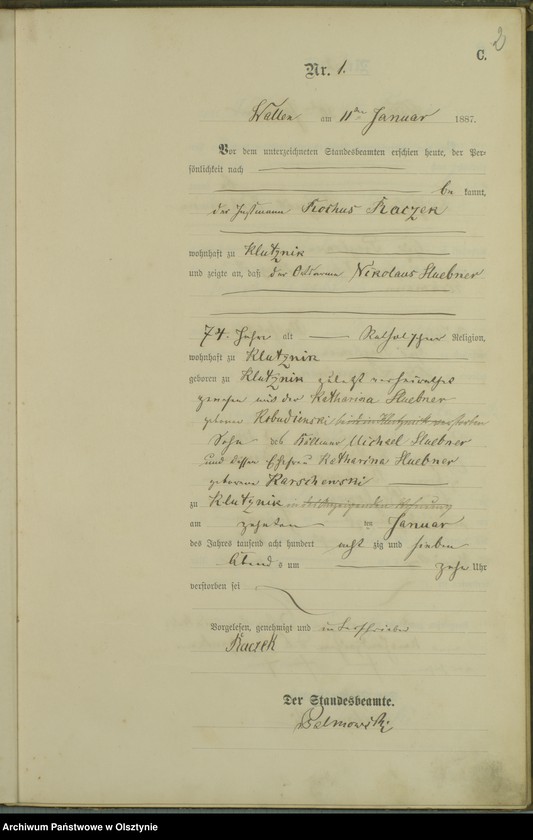 2
C.
Nr. 1.
Wallen am 11ten Januar 1887.
Vor dem unterzeichneten Standesbeamten erschien heute, der Per-
sönlichkeit nach
be kannt,
der Instmann Rochus Raczek
wohnhaft zu Klutznik
und zeigte an, daß der Ortsarme Nikolaus Stuebner
74 Jahre alt katholischer Religion,
wohnhaft zu Klutznik
geboren zu Klutznik zuletzt verheirathet
gewesen mit der Katharina Stuebner
geborene
Sohn des Köllmer Michael Stuebner
und dessen Ehefrau Katharina Stuebner
geborene Karschewski
zu Klutznik
am zehnten ten Januar
des Jahres tausend acht hundert acht zig und sieben
Abend s um zehn Uhr
verstorben sei
Vorgelesen, genehmigt und unterschrieben
Raczek
Der Standesbeamte.
Archiwum Państwowe w Olsztynie